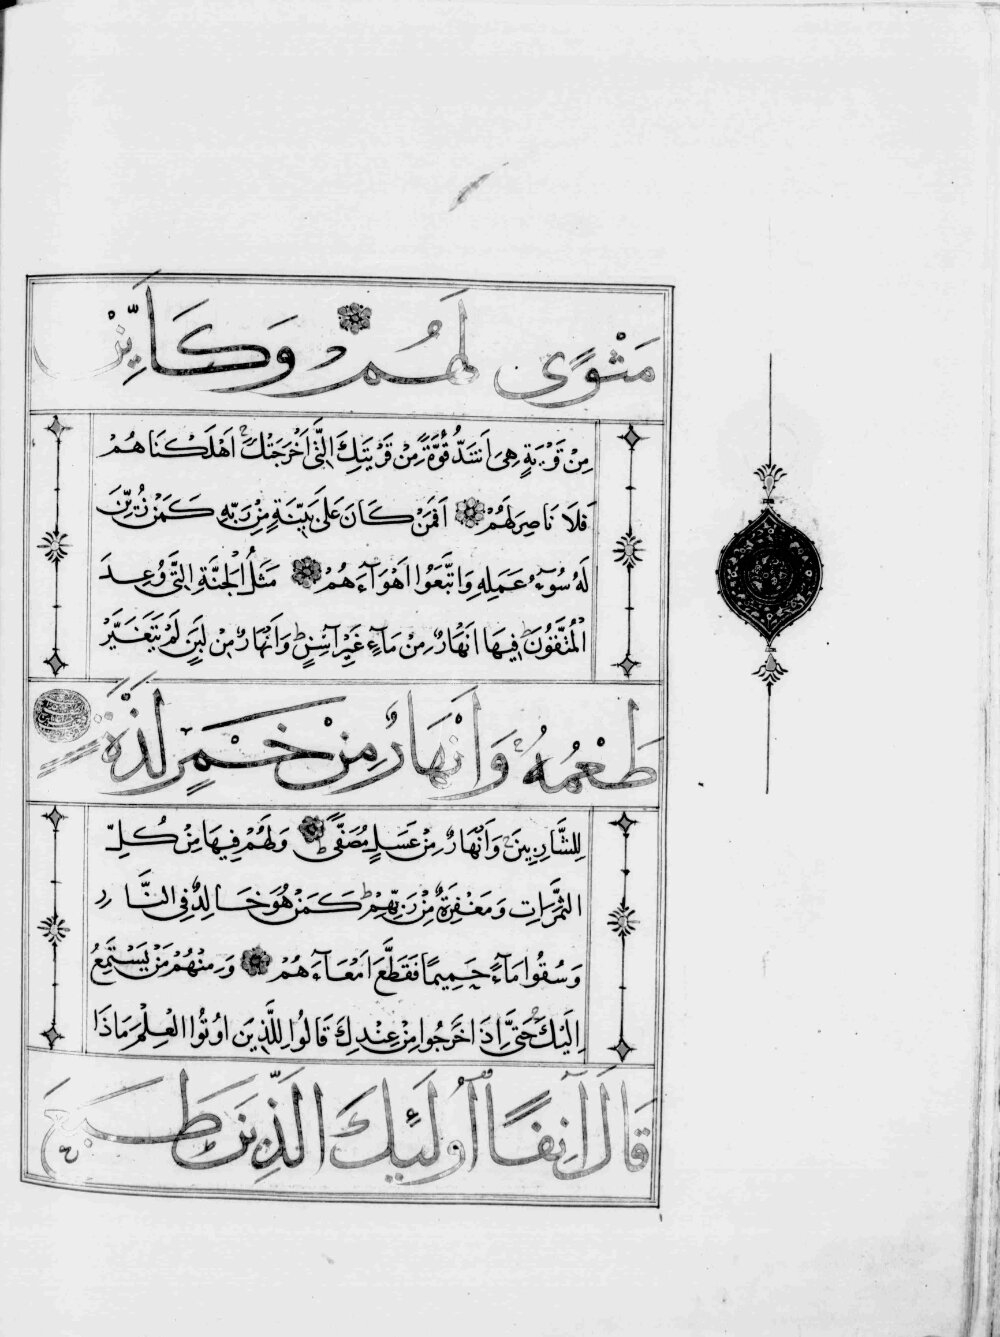 مَثْوًى لَهُمْ وَكَاَيِّنْ
مِنْ قَرْيَةٍ هِىَ اَشَدُّ قُوَّةً مِنْ قَرْيَتِكَ الَّتِى اَخْرَجَتْكَ اَهْلَكْنَاهُمْ
فَلَا نَاصِرَ لَهُمْ اَفَمَنْ كَانَ عَلَى بَيِّنَةٍ مِنْ رَبِّهِ كَمَنْ زُيِّنَ
لَهُ سُوٓءُ عَمَلِهِ وَاتَّبَعُوا اَهْوَآءَهُمْ مَثَلُ الْجَنَّةِ الَّتِى وُعِدَ
الْمُتَّقُونَ فِيهَا اَنْهَارٌ مِنْ مَآءٍ غَيْرِ آسِنٍ وَاَنْهَارٌ مِنْ لَبَنٍ لَمْ يَتَغَيَّرْ
طَعْمُهُ وَاَنْهَارٌ مِنْ خَمْرٍ لَذَّةٍ
لِلشَّارِبِينَ وَاَنْهَارٌ مِنْ عَسَلٍ مُصَفًّى وَلَهُمْ فِيهَا مِنْ كُلِّ
الثَّمَرَاتِ وَمَغْفِرَةٌ مِنْ رَبِّهِمْ كَمَنْ هُوَ خَالِدٌ فِى النَّارِ
وَسُقُوا مَآءً حَمِيمًا فَقَطَّعَ اَمْعَآءَهُمْ وَمِنْهُمْ مَنْ يَسْتَمِعُ
اِلَيْكَ حَتَّى اِذَا خَرَجُوا مِنْ عِنْدِكَ قَالُوا لِلَّذِينَ اُوتُوا الْعِلْمَ مَاذَا
قَالَ آنِفًا اُولَئِكَ الَّذِينَ طَبَعَ